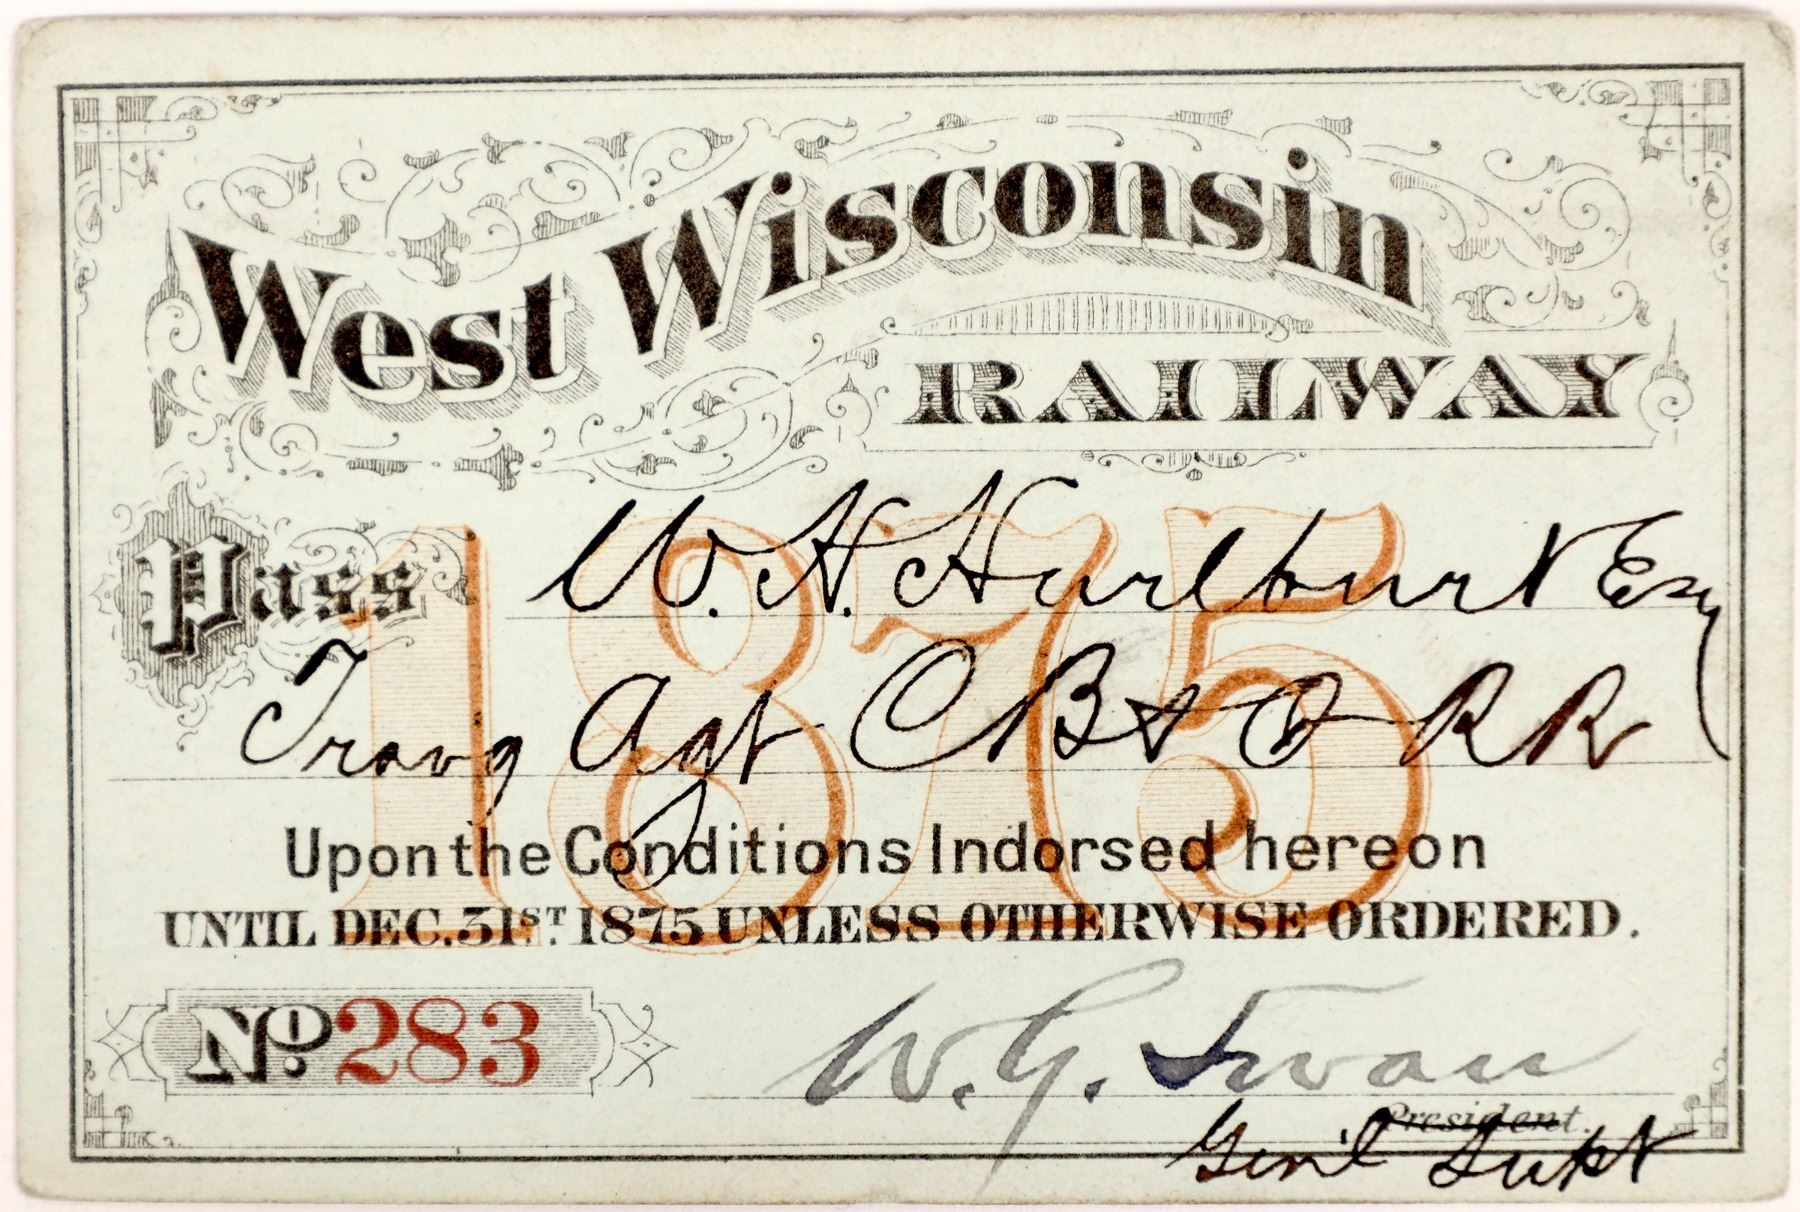 West Wisconsin
RAILWAY
Pass W. H. Hurlburt Esq
Travg Agt C B & Q R R
Upon the Conditions Indorsed hereon
UNTIL DEC. 31ST. 1875 UNLESS OTHERWISE ORDERED.
1875
No. 283
W. G. Swan
President.
Gen'l Supt